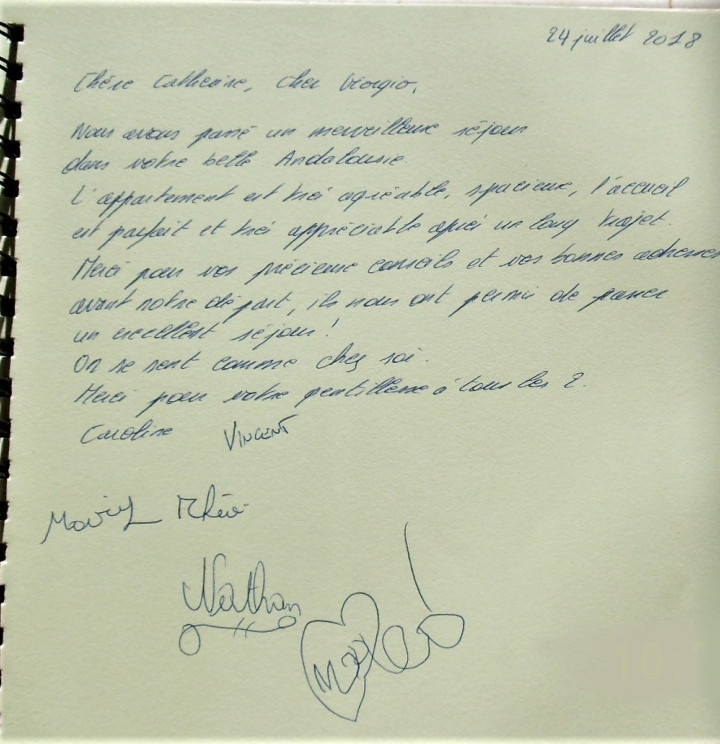 24 juillet 2018
Chère Catherine, cher Giorgio,
Nous avons passé un merveilleux séjour
dans votre belle Andalousie.
L'appartement est très agréable, spacieux, l'accueil
est parfait et très appréciable après un long trajet.
Merci pour vos précieux conseils et vos bonnes adresses
avant notre départ, ils nous ont permis de passer
un excellent séjour !
On se sent comme chez soi.
Merci pour votre gentillesse à tous les 2.
Caroline VINCENT
Nathan